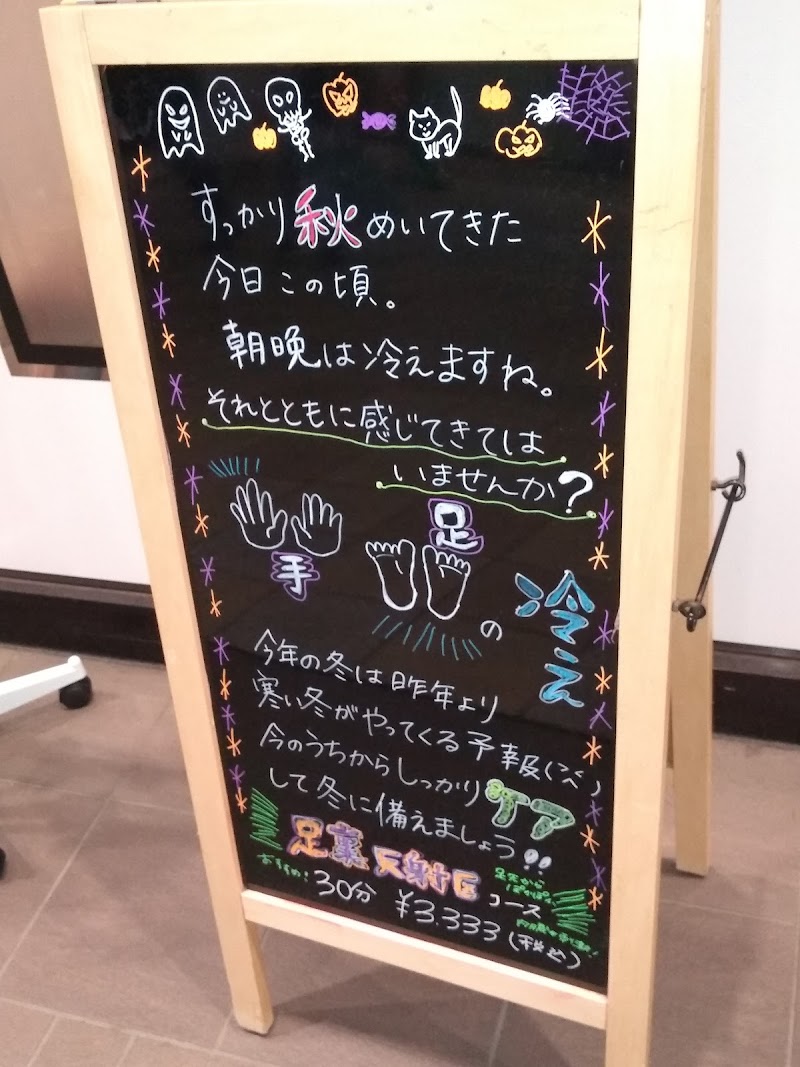 すっかり秋めいてきた
今日この頃。
朝晩は冷えますね。
それとともに感じてきては
いませんか?
手
足
の
冷え
今年の冬は昨年より
寒い冬がやってくる予報
今のうちからしっかりケア
して冬に備えましょう!!
足裏反射区コース
おすすめ!
30分 ¥3,333(税込)
足元から
ぽっかぽか